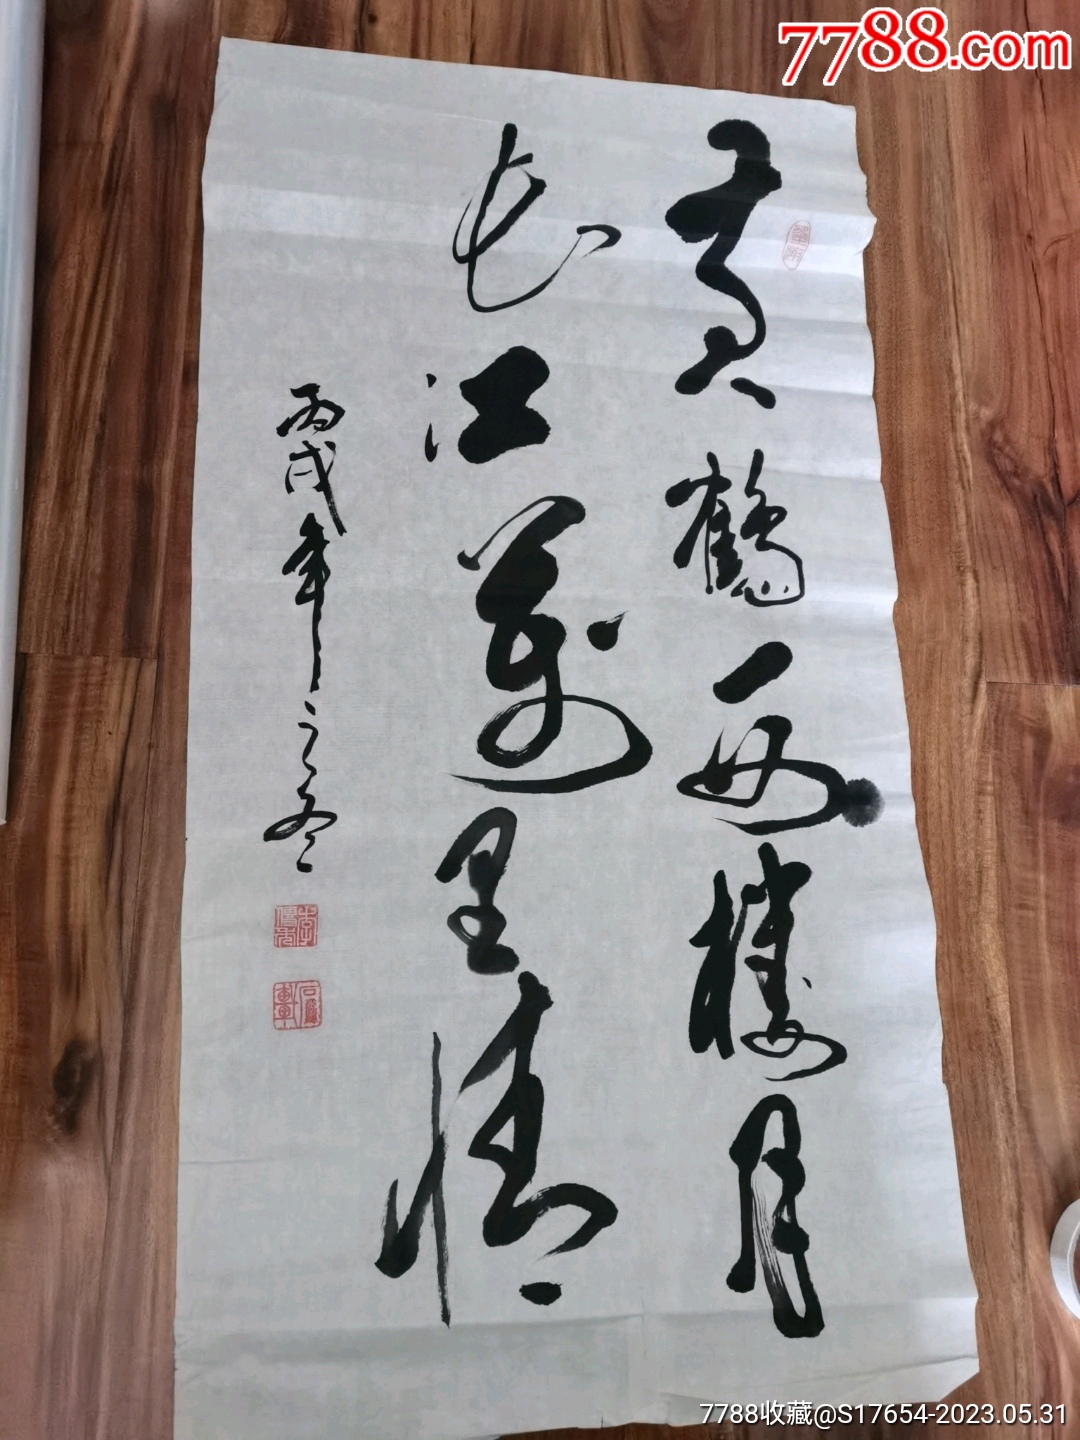 7788.com
黄鶴西樓月
长江萬里情
丙戌年之冬
7788收藏@S17654-2023.05.31